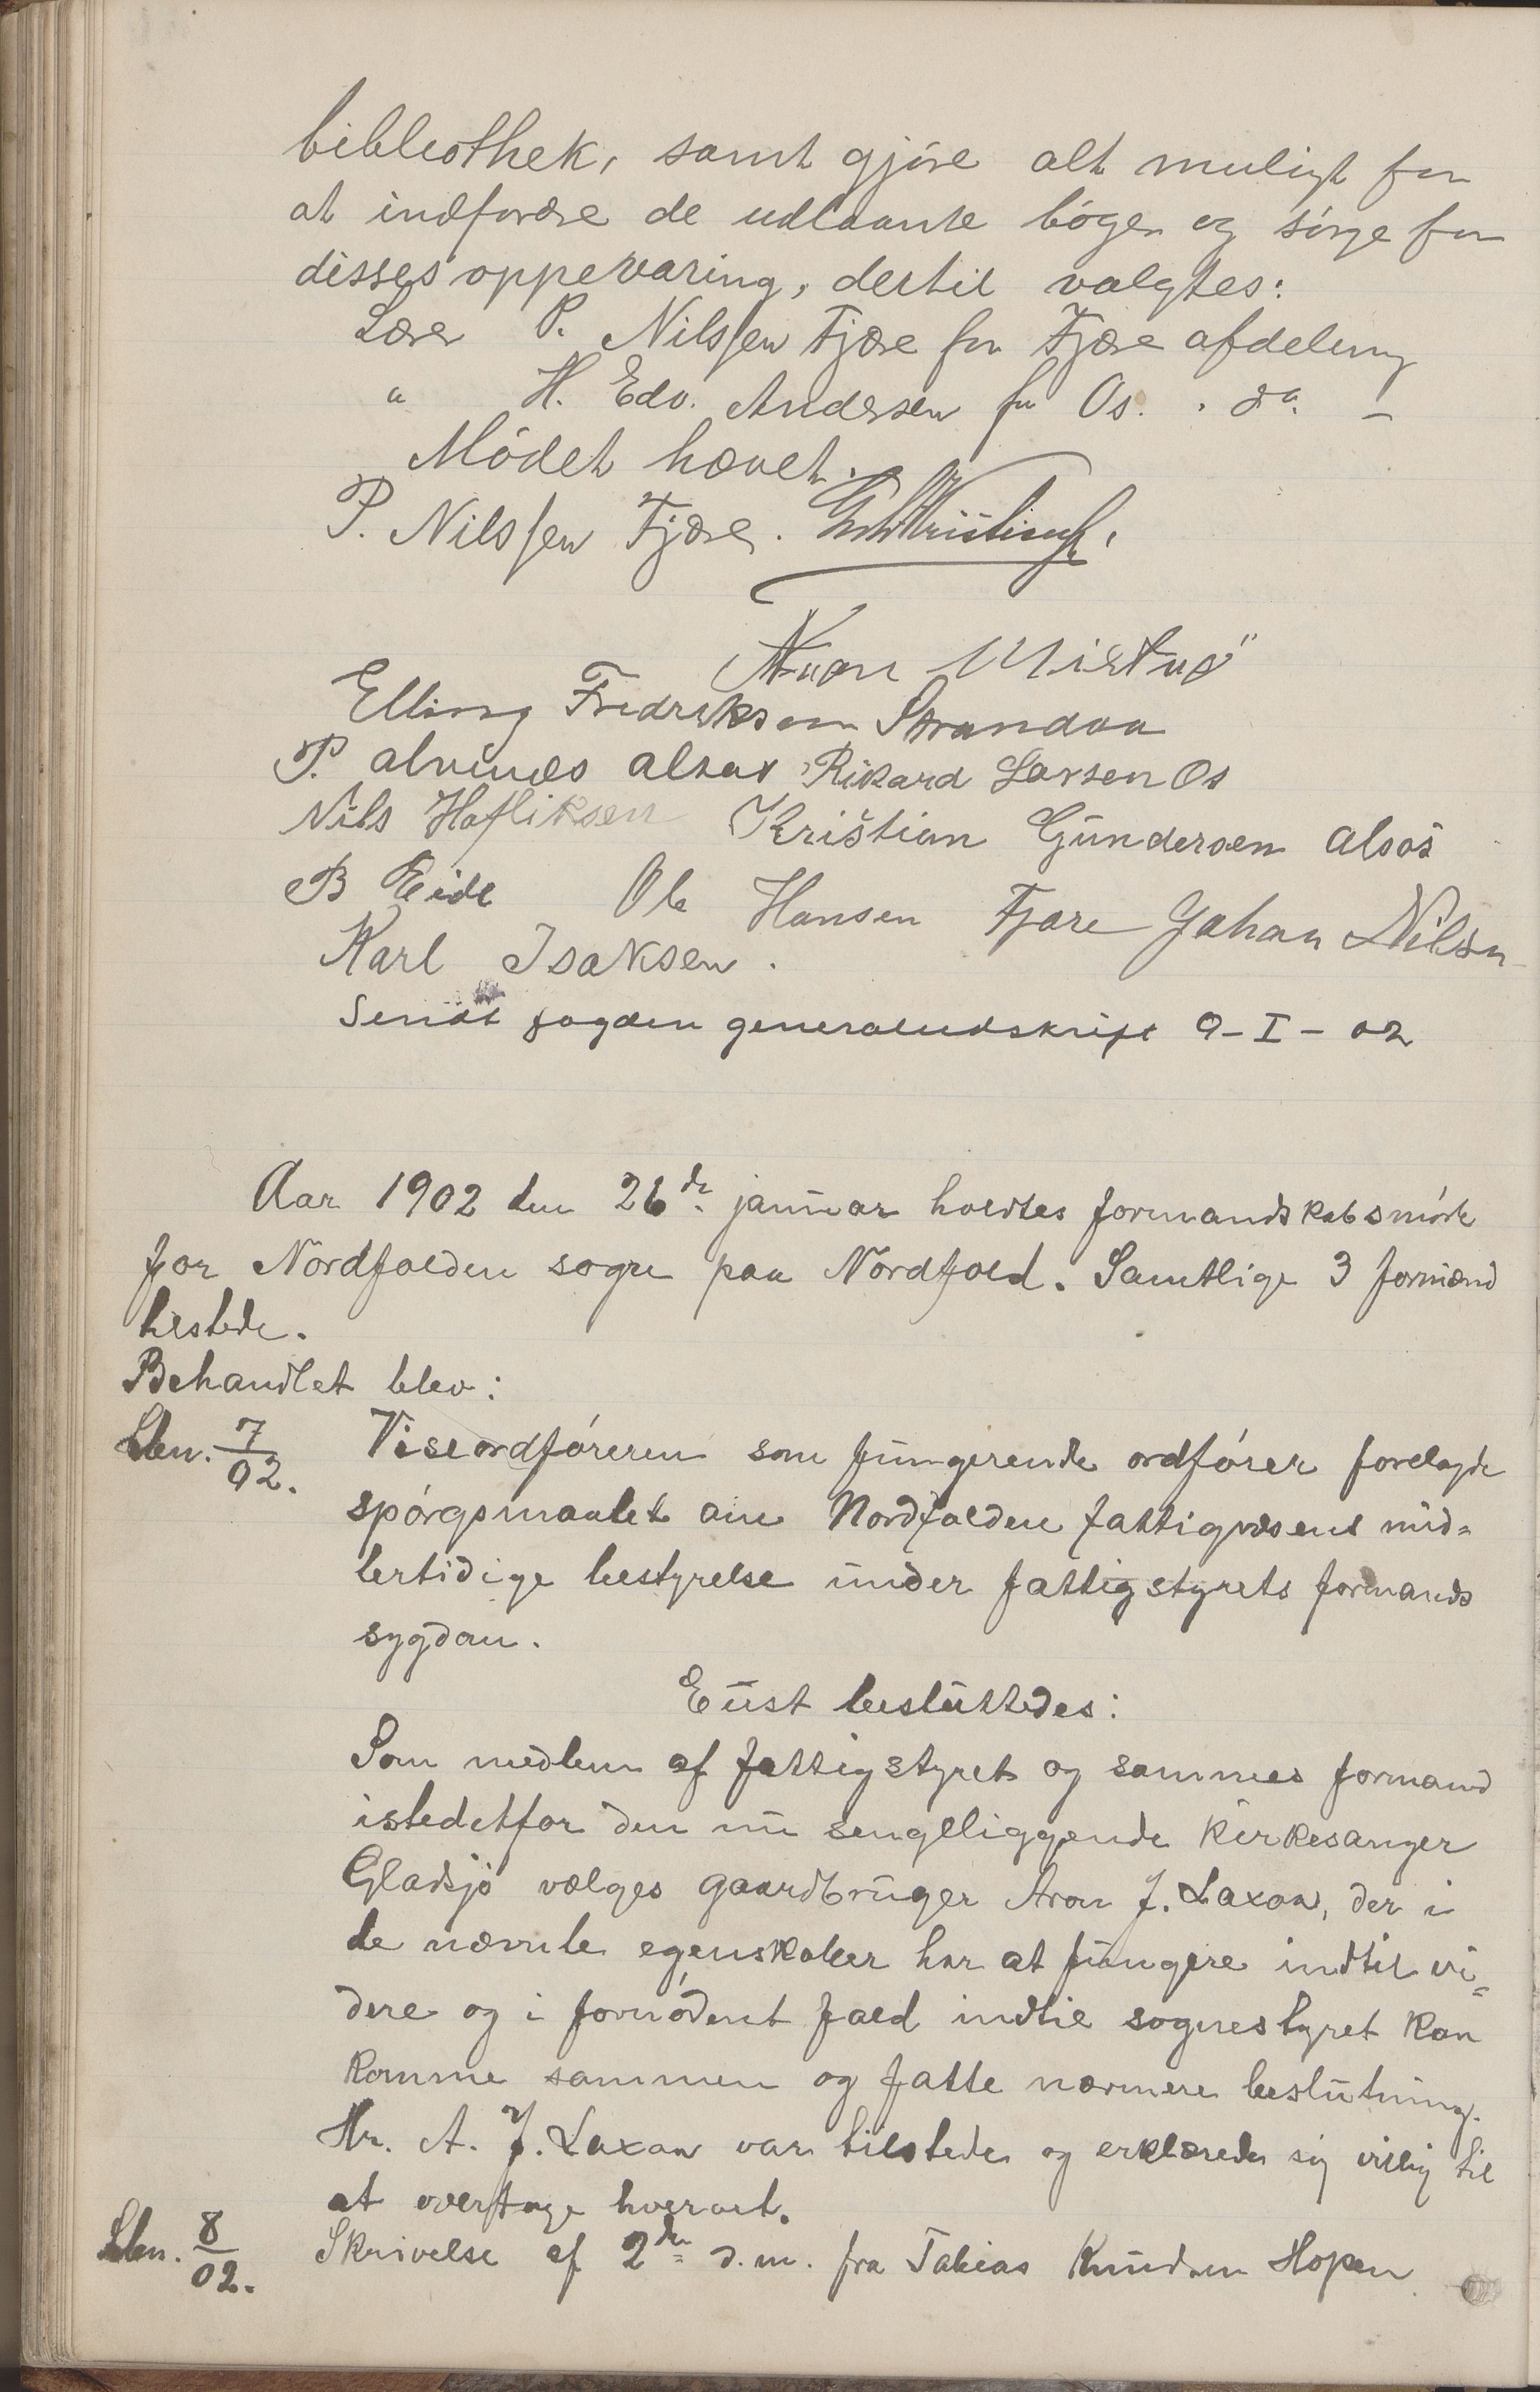 bibliothek, samt gjöre alt muligt for
at indfordre de udlaante böger og sörge for
disses oppevaring, dertil valgtes:
Lærer P. Nilssen Fjære for Fjære afdeling
" H. Edv. Andersen for Os. . do. –
Mödet hævet.
P. Nilssen Fjære.
Elling Fredriksen Strandaa
P. Alvenes Alsas Rikard Larsen Os
Nils Hafliksen Kristian Gundersen Alsos
B Eide Ole Hansen Fjære Johan Nilsen
Karl Isaksen.
Sendt fogden generaludskrift 9–I–02
Aar 1902 den 26de januar holdtes formandskabsmöde
for Nordfolden sogn paa Nordfold. Samtlige 3 formænd
tilstede.
Behandlet blev:
Lbn. 7/02. Viseordföreren som fungerende ordförer forelagde
spörgsmaalet om Nordfolden fattigvæsens mid=
lertidige bestyrelse under fattigstyrets formands
sygdom.
Enst besluttedes:
Som medlem af fattigstyret og sammes formand
istedetfor den nu sengeliggende kirkesanger
Gladsjö vælges gaardbruger Aron J. Laxaa, der i
de nævnte egenskaber har at fungere indtil vi=
dere og i fornödent fald indtil sognestyret kan
komme sammen og fatte nærmere beslutning.
Hr. A. J. Laxaa var tilstede og erklærede sig villig til
at overtage hvervet.
Lbn. 8/02. Skrivelse af 2den d.m. fra Tobias Knudsen Hopen